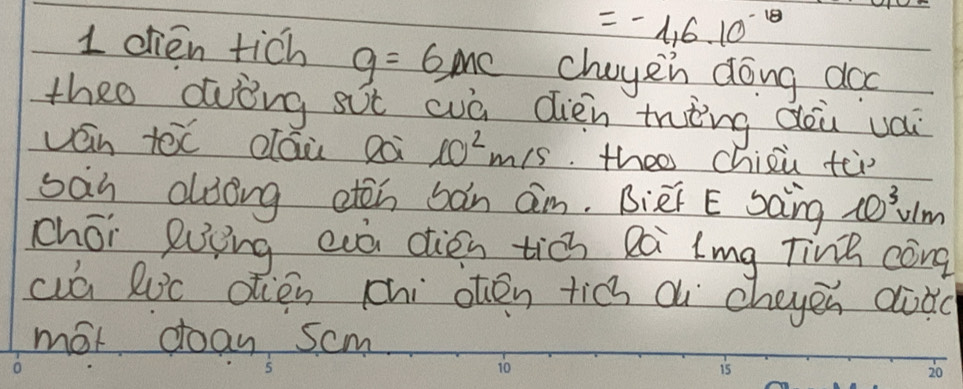 = - 1,6.10⁻¹⁸
1 điện tích q = 6µC chuyển động dọc
theo đường sức của điện trường đều với
vận tốc đầu là 10²m/s. theo chiều từ
bản dương đến bản âm. Biết E bằng 10³v/m
khối lượng của điện tích là 1mg Tính công
của lực điện khi điện tích di chuyển được
một đoạn 5cm
0 5 10 15 20